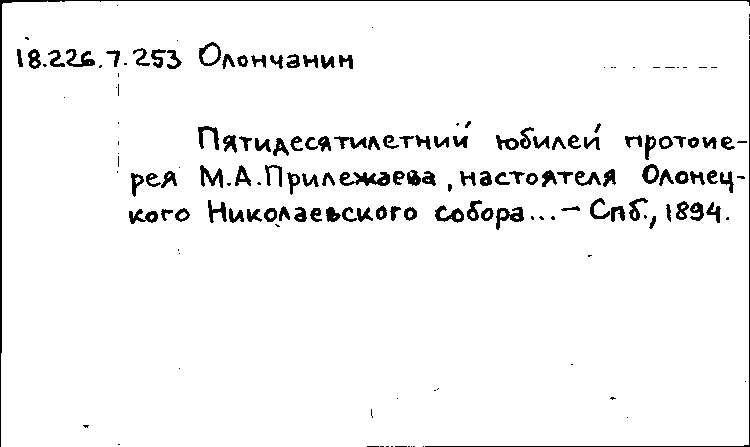 18.226.7.253 Олончанин
Пятидесятилетний юбилей протоие-
рея М.А.Прилежаева, настоятеля Олонец-
кого Николаевского собора...– Спб., 1894.